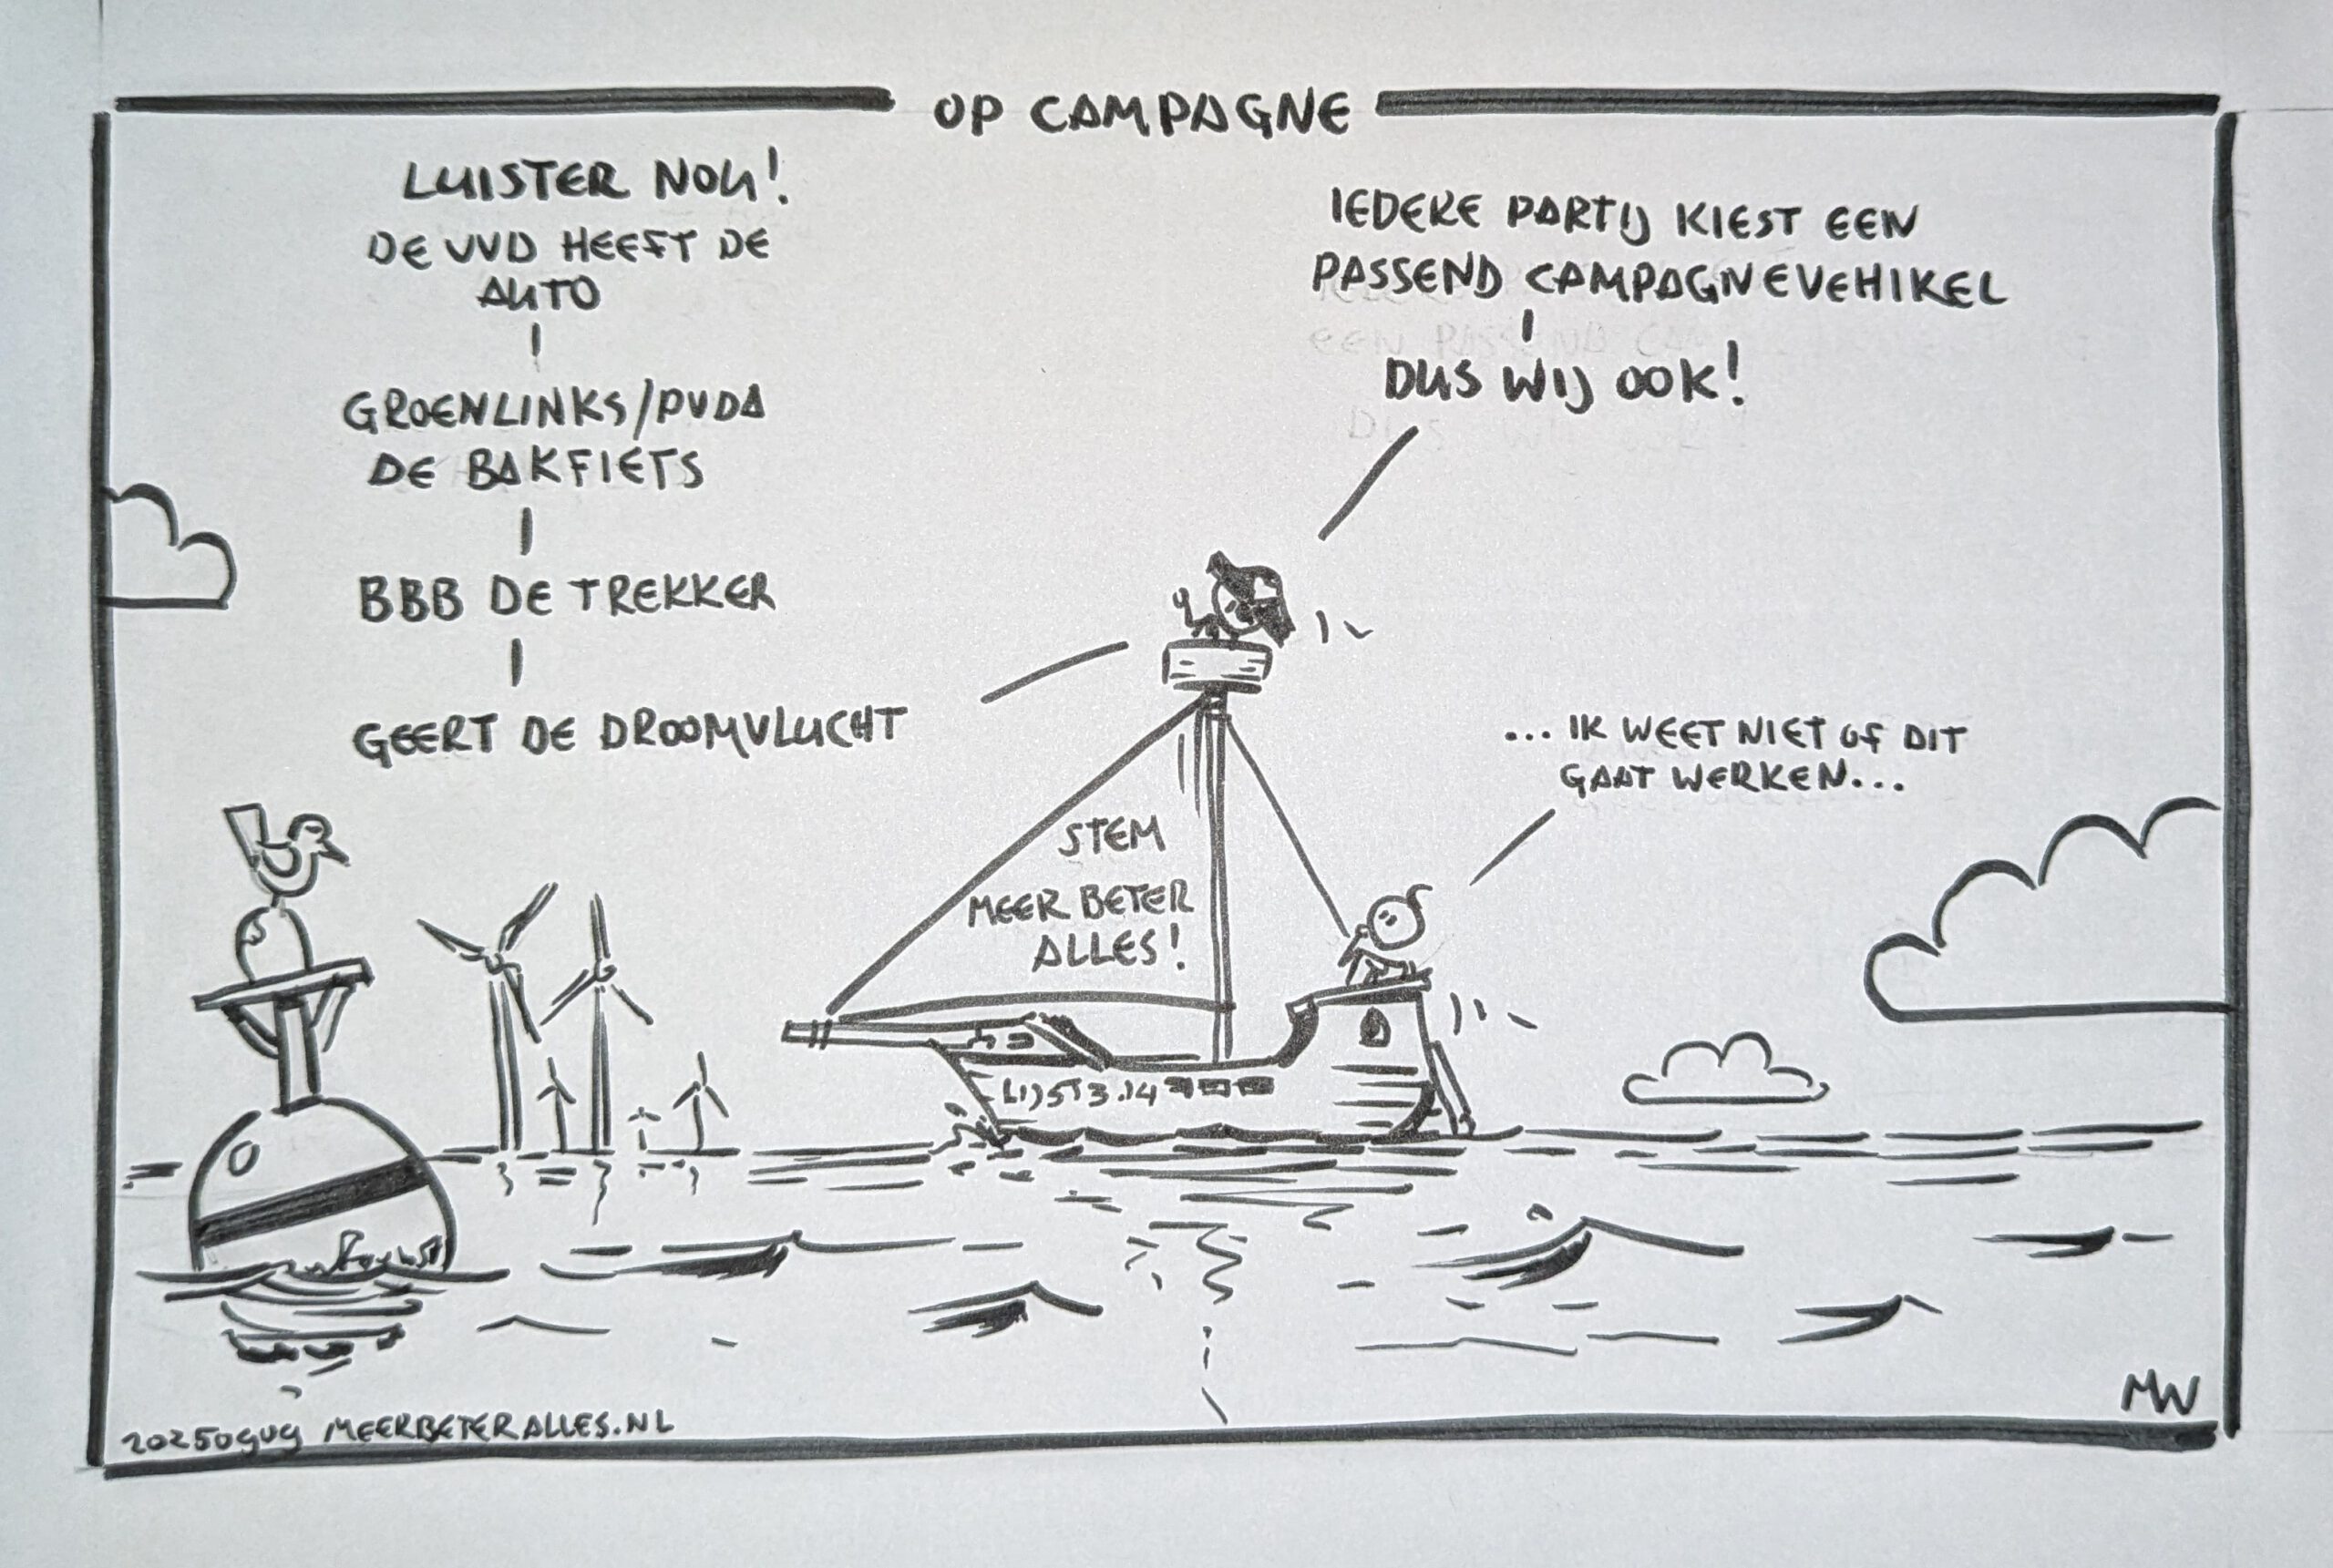 OP CAMPAGNE
LUISTER NOU!
DE VVD HEEFT DE
AUTO
GROENLINKS/PVDA
DE BAKFIETS
BBB DE TREKKER
GEERT DE DROOMVLUCHT
IEDERE PARTIJ KIEST EEN
PASSEND CAMPAGNEVEHIKEL
DUS WIJ OOK!
... IK WEET NIET OF DIT
GAAT WERKEN...
STEM
MEER BETER
ALLES!
20250909 MEERBETERALLES.NL
MW